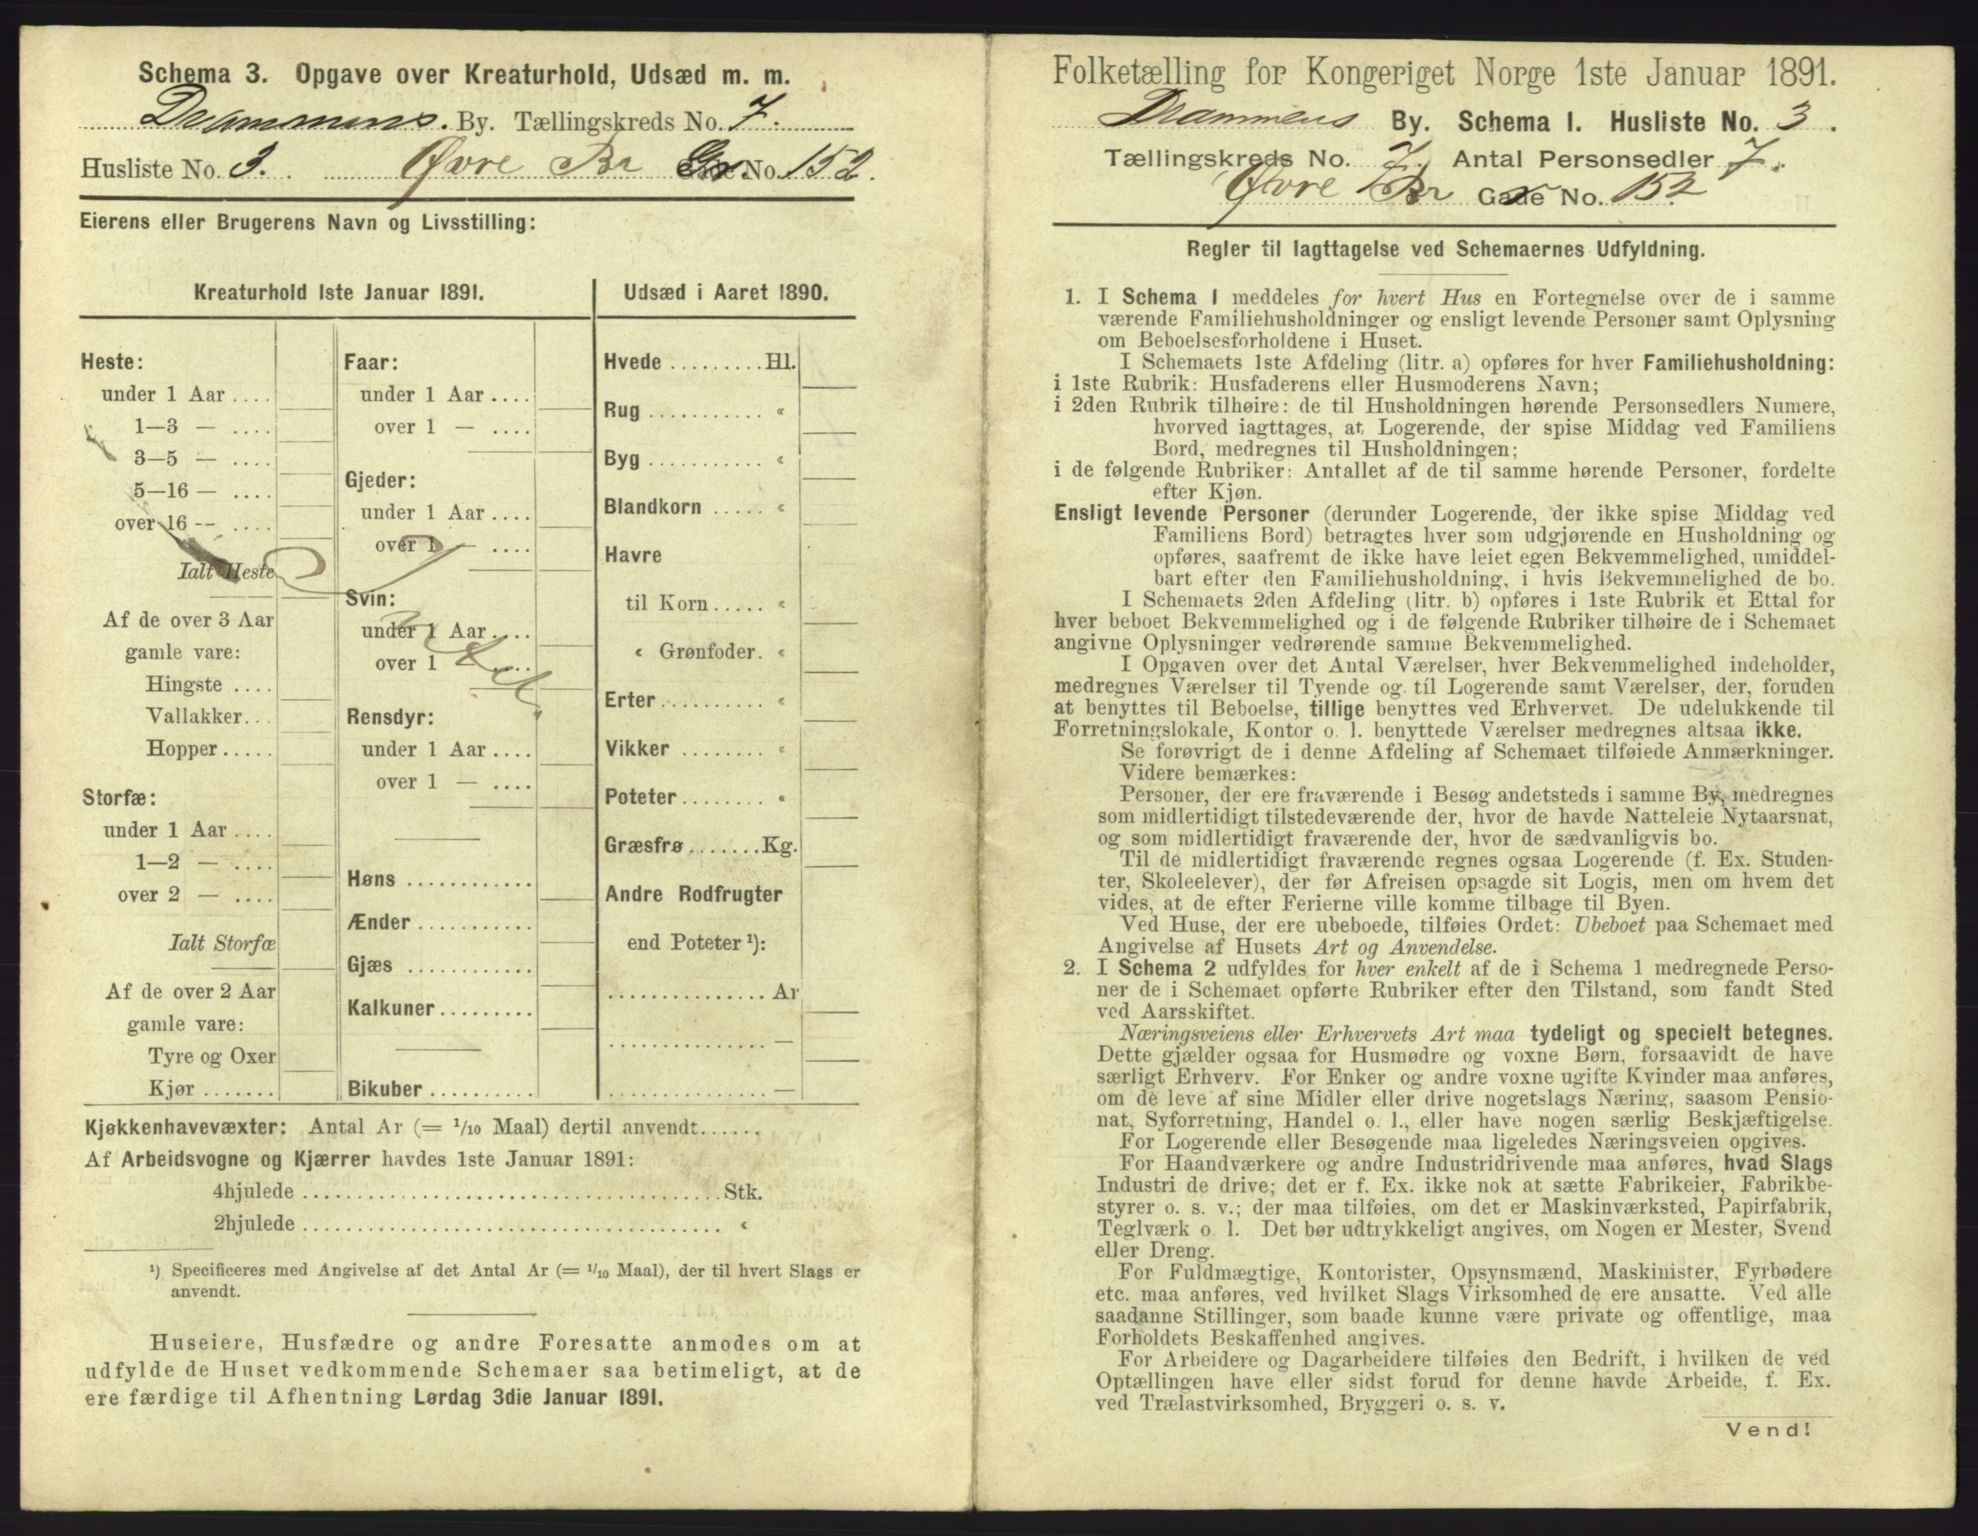 Schema 3. Opgave over Kreaturhold, Udsæd m. m.
Drammens. By. Tællingskreds No. 7.
Husliste No. 3. Øvre Br No. 152.
Eierens eller Brugerens Navn og Livsstilling:
Kreaturhold 1ste Januar 1891.
Heste:
under 1 Aar ....
1—3 — ....
3—5 — ....
5—16 — ....
over 16 -- ....
Ialt Heste
Af de over 3 Aar
gamle vare:
Hingste ....
Vallakker...
Hopper.....
Storfæ:
under 1 Aar ....
1—2 — ....
over 2 — ....
Ialt Storfæ
Af de over 2 Aar
gamle vare:
Tyre og Oxer
Kjør .......
Faar:
under 1 Aar ....
over 1 — ....
Gjeder:
under 1 Aar ....
over 1 — ....
Svin:
under 1 Aar ....
over 1 ....
Rensdyr:
under 1 Aar ....
over 1 — ....
Høns ............
Ænder ...........
Gjæs ............
Kalkuner.........
Bikuber ..........
Udsæd i Aaret 1890.
Hvede .........Hl.
Rug ........... «
Byg ........... «
Blandkorn ..... «
Havre
til Korn ..... «
« Grønfoder. «
Erter.......... «
Vikker ........ «
Poteter........ «
Græsfrø .......Kg.
Andre Rodfrugter
end Poteter ¹):
............... Ar
............... —
............... —
Kjøkkenhavevæxter: Antal Ar (= 1/10 Maal) dertil anvendt......
Af Arbeidsvogne og Kjærrer havdes 1ste Januar 1891:
4hjulede ........................................Stk.
2hjulede ........................................ «
¹) Specificeres med Angivelse af det Antal Ar (= 1/10 Maal), der til hvert Slags er
anvendt.
Huseiere, Husfædre og andre Foresatte anmodes om at
udfylde de Huset vedkommende Schemaer saa betimeligt, at de
ere færdige til Afhentning Lørdag 3die Januar 1891.
Folketælling for Kongeriget Norge 1ste Januar 1891.
Drammens By. Schema I. Husliste No. 3.
Tællingskreds No. 7. Antal Personsedler 7.
Øvre Br Gade No. 152
Regler til Iagttagelse ved Schemaernes Udfyldning.
1. I Schema 1 meddeles for hvert Hus en Fortegnelse over de i samme
værende Familiehusholdninger og ensligt levende Personer samt Oplysning
om Beboelsesforholdene i Huset.
I Schemaets 1ste Afdeling (litr. a) opføres for hver Familiehusholdning:
i 1ste Rubrik: Husfaderens eller Husmoderens Navn;
i 2den Rubrik tilhøire: de til Husholdningen hørende Personsedlers Numere,
hvorved iagttages, at Logerende, der spise Middag ved Familiens
Bord, medregnes til Husholdningen;
i de følgende Rubriker: Antallet af de til samme hørende Personer, fordelte
efter Kjøn.
Ensligt levende Personer (derunder Logerende, der ikke spise Middag ved
Familiens Bord) betragtes hver som udgjørende en Husholdning og
opføres, saafremt de ikke have leiet egen Bekvemmelighed, umiddel-
bart efter den Familiehusholdning, i hvis Bekvemmelighed de bo.
I Schemaets 2den Afdeling (litr. b) opføres i 1ste Rubrik et Ettal for
hver beboet Bekvemmelighed og i de følgende Rubriker tilhøire de i Schemaet
angivne Oplysninger vedrørende samme Bekvemmelighed.
I Opgaven over det Antal Værelser, hver Bekvemmelighed indeholder,
medregnes Værelser til Tyende og til Logerende samt Værelser, der, foruden
at benyttes til Beboelse, tillige benyttes ved Erhvervet. De udelukkende til
Forretningslokale, Kontor o. l. benyttede Værelser medregnes altsaa ikke.
Se forøvrigt de i denne Afdeling af Schemaet tilføiede Anmærkninger.
Videre bemærkes:
Personer, der ere fraværende i Besøg andetsteds i samme By, medregnes
som midlertidigt tilstedeværende der, hvor de havde Natteleie Nytaarsnat,
og som midlertidigt fraværende der, hvor de sædvanligvis bo.
Til de midlertidigt fraværende regnes ogsaa Logerende (f. Ex. Studen-
ter, Skoleelever), der før Afreisen opsagde sit Logis, men om hvem det
vides, at de efter Ferierne ville komme tilbage til Byen.
Ved Huse, der ere ubeboede, tilføies Ordet: Ubeboet paa Schemaet med
Angivelse af Husets Art og Anvendelse.
2. I Schema 2 udfyldes for hver enkelt af de i Schema 1 medregnede Perso-
ner de i Schemaet opførte Rubriker efter den Tilstand, som fandt Sted
ved Aarsskiftet.
Næringsveiens eller Erhvervets Art maa tydeligt og specielt betegnes.
Dette gjælder ogsaa for Husmødre og voxne Børn, forsaavidt de have
særligt Erhverv. For Enker og andre voxne ugifte Kvinder maa anføres,
om de leve af sine Midler eller drive nogetslags Næring, saasom Pensio-
nat, Syforretning, Handel o. l., eller have nogen særlig Beskjæftigelse.
For Logerende eller Besøgende maa ligeledes Næringsveien opgives.
For Haandværkere og andre Industridrivende maa anføres, hvad Slags
Industri de drive; det er f. Ex. ikke nok at sætte Fabrikeier, Fabrikbe-
styrer o. s. v.; der maa tilføies, om det er Maskinværksted, Papirfabrik,
Teglværk o. l. Det bør udtrykkeligt angives, om Nogen er Mester, Svend
eller Dreng.
For Fuldmægtige, Kontorister, Opsynsmænd, Maskinister, Fyrbødere
etc. maa anføres, ved hvilket Slags Virksomhed de ere ansatte. Ved alle
saadanne Stillinger, som baade kunne være private og offentlige, maa
Forholdets Beskaffenhed angives.
For Arbeidere og Dagarbeidere tilføies den Bedrift, i hvilken de ved
Optællingen have eller sidst forud for denne havde Arbeide, f. Ex.
ved Trælastvirksomhed, Bryggeri o. s. v.
Vend!